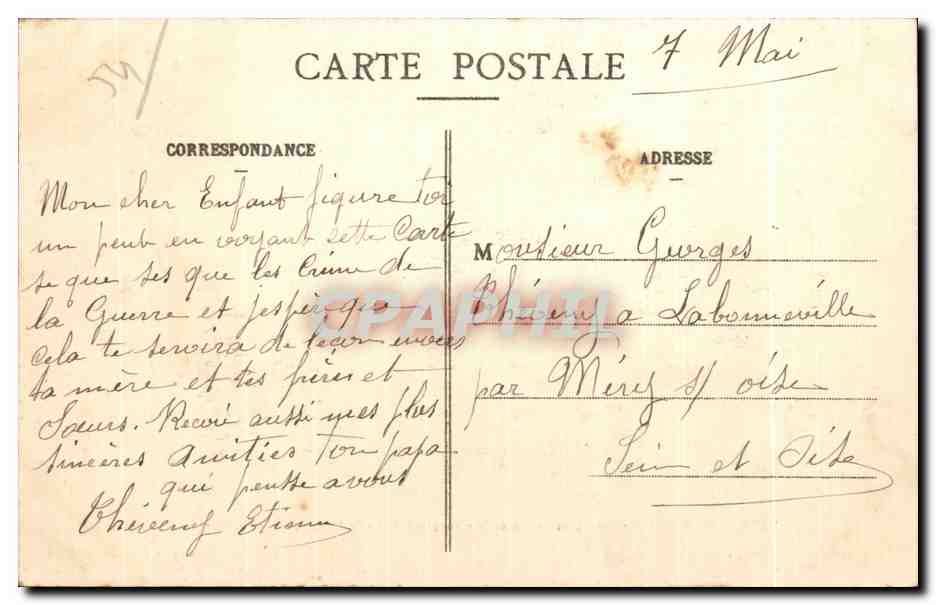 CARTE POSTALE
7 Mai
CORRESPONDANCE
Mon cher Enfant figure toi
un peut en voyant sette Carte
se que ses que les Crime de
la Guerre et j'espèr que
cela te servira de leçon
ta mère et tes frères et
Sœurs. Recoie aussi mes plus
sincères Amities Ton papa
qui pensse a vous
Théveny Etienne
ADRESSE
Monsieur Georges
Théveny a Labonneville
par Mérij s/ oise
Sein et Oise
CPAPHIL